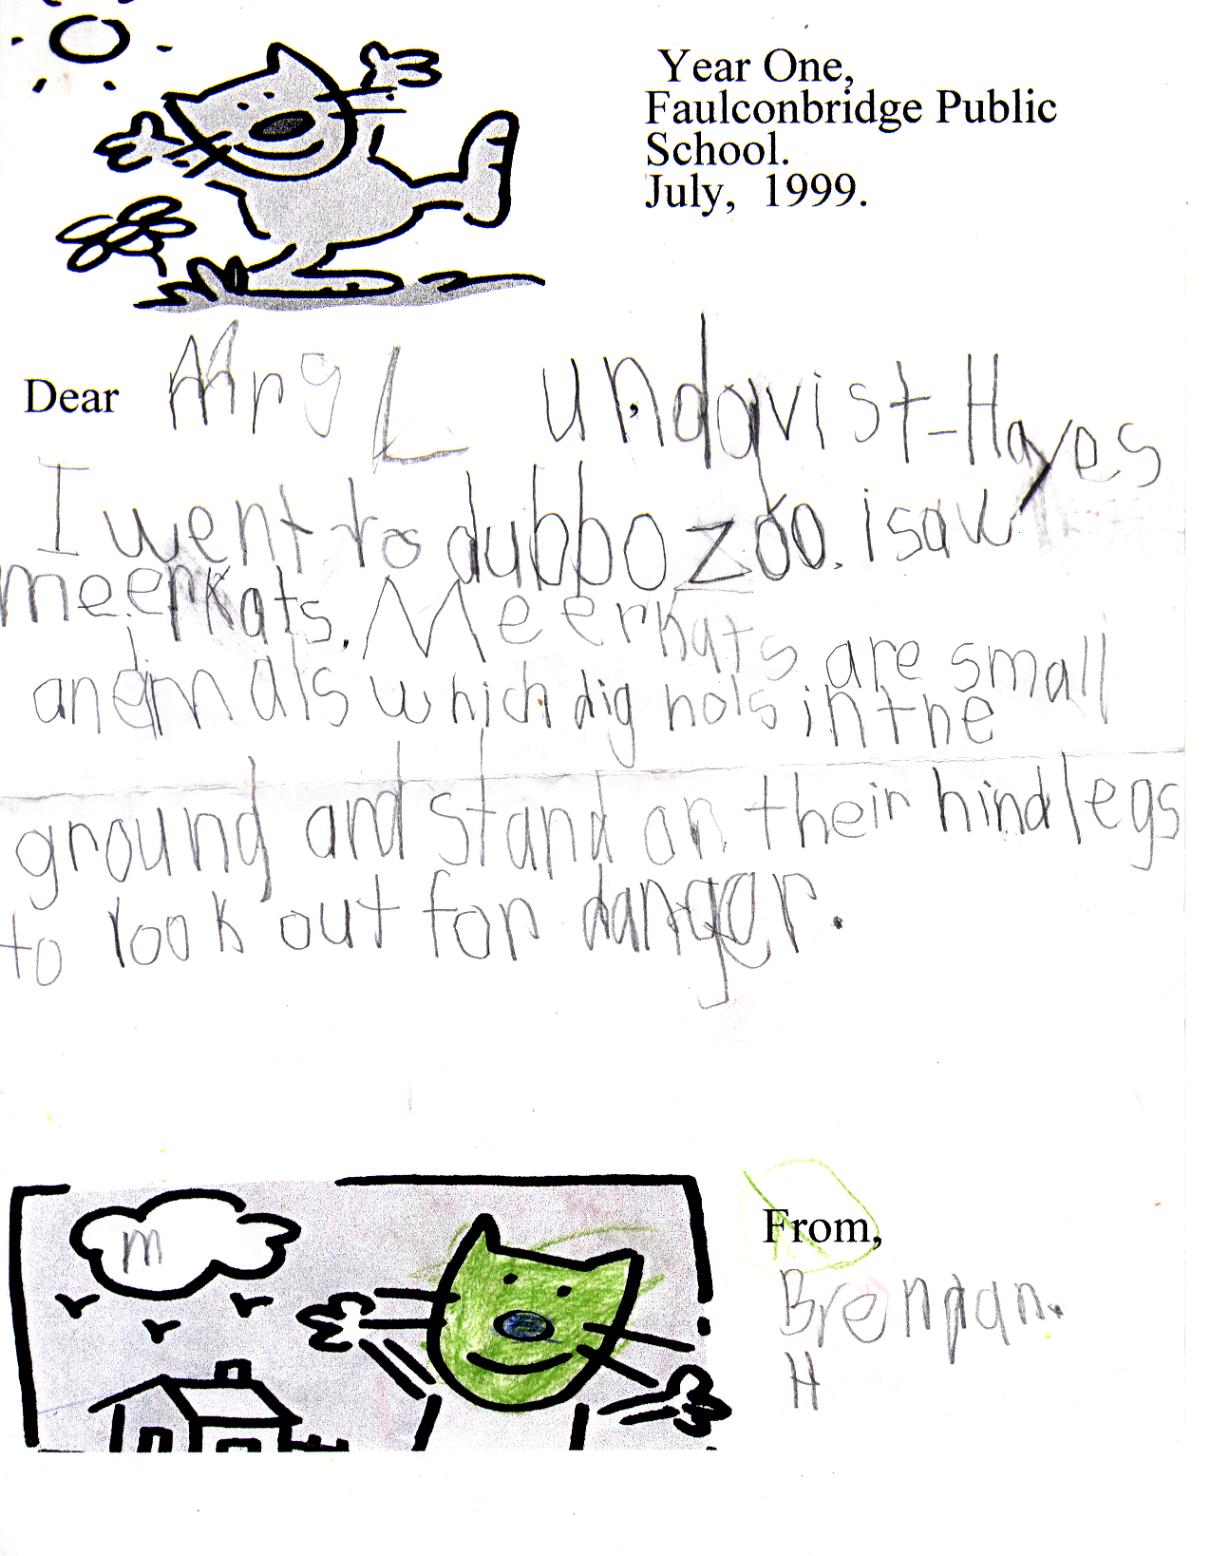 Year One,
Faulconbridge Public
School.
July, 1999.
Dear Mrs Lundqvist-Hayes
I went to dubbo zoo. i saw
meerkats. Meerkats are small
anemals which dig hols in the
ground and stand on their hind legs
to look out for danger.
m
From,
Brendan.
H